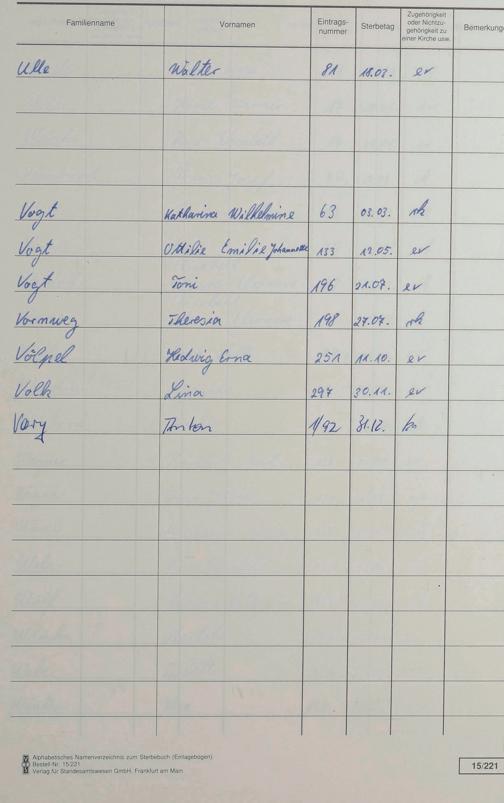 Familienname Vornamen Eintrags-nummer Sterbetag Zugehörigkeit oder Nichtzu-gehörigkeit zu einer Kirche usw. Bemerkung
Ulle Walter 81 18.02. ev
Vogt Katharina Wilhelmine 63 03.03. rk
Vogt Ottilie Emilie Johannette 133 12.05. ev
Vogt Toni 196 21.07. ev
Vormweg Theresia 198 27.07. rk
Völpel Hedwig Erna 251 11.10. ev
Volk Lina 297 30.11. ev
Vary Anton 1/92 31.12.
Alphabetisches Namenverzeichnis zum Sterbebuch (Einlagebogen)
Bestell-Nr. 15/221
Verlag für Standesamtswesen GmbH, Frankfurt am Main
15/221